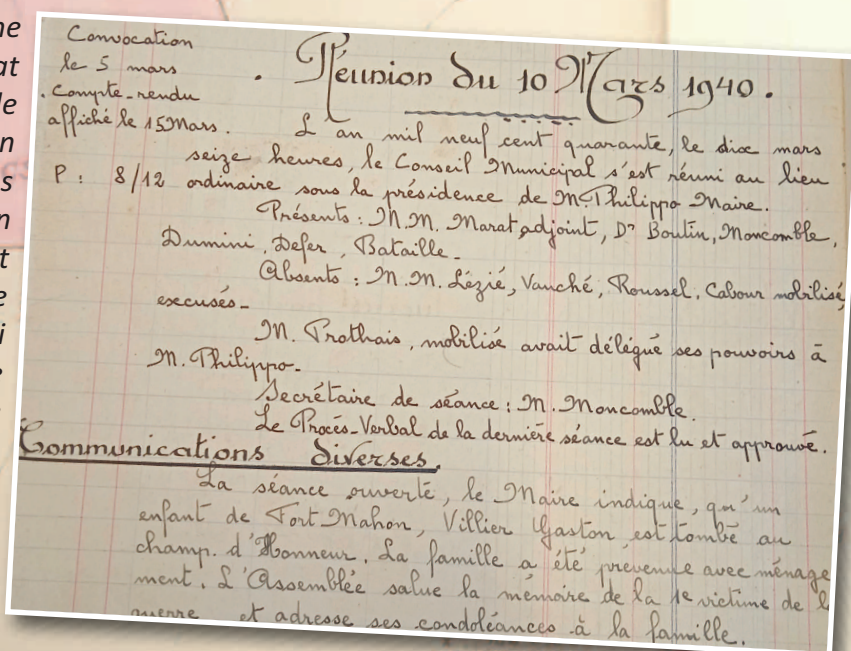 ne
at
le
n
s
n
t
e
i
Convocation
le 5 mars
. Compte-rendu
affiché le 15 Mars.
P : 8/12
. Réunion du 10 Mars 1940.
L'an mil neuf cent quarante, le dix mars
seize heures, le Conseil Municipal s'est réuni au lieu
ordinaire sous la présidence de M. Philippo Maire.
Présents : M.M. Marat adjoint, Dr Boutin, Moncomble,
Dumini, Defer, Bataille_
Absents : M.M. Lézié, Vauché, Roussel, Cabour mobilisé,
excusés_
M. Prothais, mobilisé avait délégué ses pouvoirs à
M. Philippo_
Secrétaire de séance : M. Moncomble.
Le Procès-Verbal de la dernière séance est lu et approuvé.
Communications diverses.
La séance ouverte, le Maire indique, qu'un
enfant de Fort Mahon, Villier Gaston est tombé au
champ. d'Honneur. La famille a été prévenue avec ménage
ment. L'Assemblée salue la mémoire de la 1e victime de l
guerre et adresse ses condoléances à la famille.